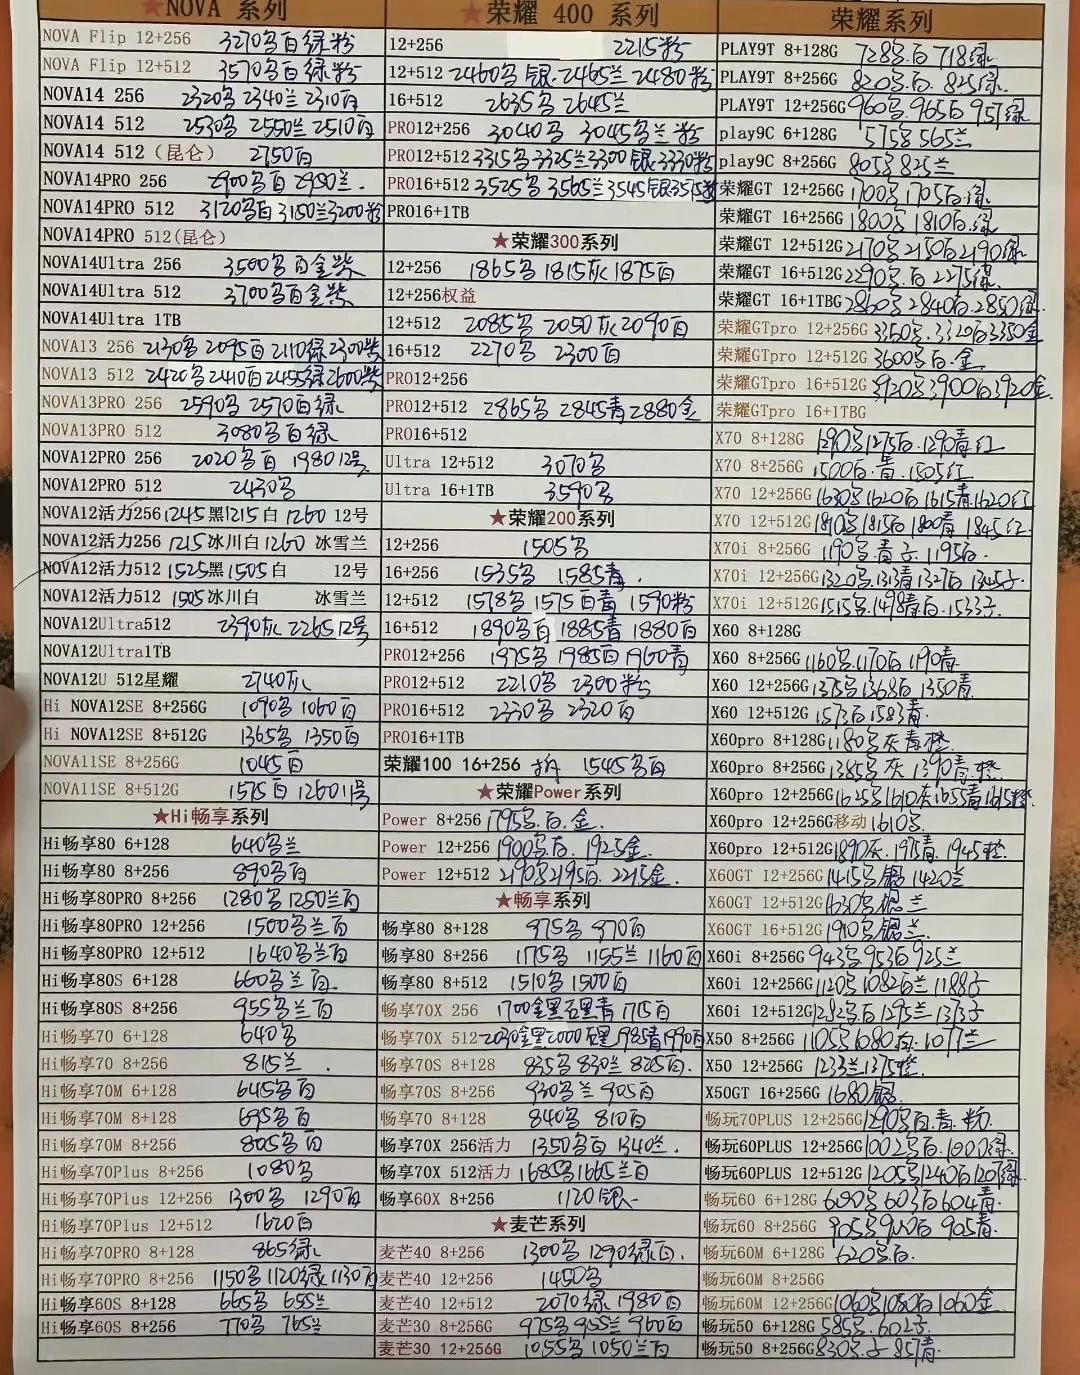 ★NOVA 系列
NOVA Flip 12+256 3270各白绿粉
NOVA Flip 12+512 3570各白绿粉
NOVA14 256 2320各 2340兰 2310白
NOVA14 512 2530各 2550兰 2510白
NOVA14 512（昆仑） 2750白
NOVA14PRO 256 2900各白 2980兰.
NOVA14PRO 512 3120各白 3150兰 3200粉
NOVA14PRO 512(昆仑)
NOVA14Ultra 256 3500各白金紫
NOVA14Ultra 512 3700各白金紫
NOVA14Ultra 1TB
NOVA13 256 2130各 2095白 2110绿 2300紫
NOVA13 512 2420各 2410白 2455绿 2600紫
NOVA13PRO 256 2590各 2570白绿
NOVA13PRO 512 3080各白绿
NOVA12PRO 256 2020各白 1980 12号
NOVA12PRO 512 2430各
NOVA12活力256 1245黑 1215白 1260 12号
NOVA12活力256 1215冰川白 1260 冰雪兰
NOVA12活力512 1525黑 1505白 12号
NOVA12活力512 1505冰川白 冰雪兰
NOVA12Ultra512 2390灰 2265 12号
NOVA12Ultra1TB
NOVA12U 512星耀 2740灰
Hi NOVA12SE 8+256G 1090各 1060白
Hi NOVA12SE 8+512G 1365各 1350白
NOVA11SE 8+256G 1045白
NOVA11SE 8+512G 1575白 1260 11号
★Hi畅享系列
Hi畅享80 6+128 640各兰
Hi畅享80 8+256 890各白
Hi畅享80PRO 8+256 1280各 1250兰白
Hi畅享80PRO 12+256 1500各兰白
Hi畅享80PRO 12+512 1640各兰白
Hi畅享80S 6+128 660各兰白.
Hi畅享80S 8+256 955各兰白
Hi畅享70 6+128 640各
Hi畅享70 8+256 815兰 .
Hi畅享70M 6+128 645各白
Hi畅享70M 8+128 695各白
Hi畅享70M 8+256 805各白
Hi畅享70Plus 8+256 1080各
Hi畅享70Plus 12+256 1300各 1290白
Hi畅享70Plus 12+512 1620白
Hi畅享70PRO 8+128 865绿
Hi畅享70PRO 8+256 1150各 1120绿 1130白
Hi畅享60S 8+128 665各 655兰
Hi畅享60S 8+256 770各 765兰
★荣耀 400 系列
12+256 2215粉
12+512 2460各 银.2465兰 2480粉
16+512 2635各 2645兰
PRO12+256 3040各 3045各兰 粉
PRO12+512 3315各 3325兰 3300银 3330粉
PRO16+512 3525各 3565兰 3545银 3575粉
PRO16+1TB
★荣耀300系列
12+256 1865各 1815灰 1875白
12+256权益
12+512 2085各 2050灰 2090白
16+512 2270各 2300白
PRO12+256
PRO12+512 2865各 2845青 2880金
PRO16+512
Ultra 12+512 3070各
Ultra 16+1TB 3590各
★荣耀200系列
12+256 1505各
16+256 1535各 1585青.
12+512 1578各 1575白青 1590粉
16+512 1890各白 1885青 1880白
PRO12+256 1975各 1985白 1960青
PRO12+512 2210各 2300粉
PRO16+512 2330各 2320白
PRO16+1TB
荣耀100 16+256 1545各白
★荣耀Power系列
Power 8+256 1795各.白.金.
Power 12+256 1900各白. 1925金.
Power 12+512 2190各 2195白. 2215金.
★畅享系列
畅享80 8+128 975各 970白
畅享80 8+256 1175各 1155兰 1160白
畅享80 8+512 1510各 1500白
畅享70X 256 1700金黑 石黑青 1715白
畅享70X 512 2030金黑 2000石黑 1985青 1990白
畅享70S 8+128 835各 830兰 805白.
畅享70S 8+256 930各兰 905白
畅享70 8+128 840各 810白
畅享70X 256活力 1350各白 1340兰.
畅享70X 512活力 1685各 1665兰白
畅享60X 8+256 1120银
★麦芒系列
麦芒40 8+256 1300各 1290绿白.
麦芒40 12+256 1450各
麦芒40 12+512 2070绿 1980白
麦芒30 8+256G 975各 955兰 960白
麦芒30 12+256G 1055各 1050兰白
荣耀系列
PLAY9T 8+128G 728各白 718绿
PLAY9T 8+256G 820各白. 825绿.
PLAY9T 12+256G 960各.965白 957绿
play9C 6+128G 575各 565兰
play9C 8+256G 805各 825兰
荣耀GT 12+256G 1700各 1705白.绿
荣耀GT 16+256G 1800各 1810白.绿
荣耀GT 12+512G 2170各 2150白 2190绿
荣耀GT 16+512G 2290各.白 2275绿.
荣耀GT 16+1TBG 2860各 2840白 2850绿.
荣耀GTpro 12+256G 3350各.3320白 3350金
荣耀GTpro 12+512G 3600各白.金
荣耀GTpro 16+512G 3920各 3900白 3920金.
荣耀GTpro 16+1TBG
X70 8+128G 1290各 1275白.1290青.红
X70 8+256G 1500白.青.1505红
X70 12+256G 1630各 1620白 1615青 1620红
X70 12+512G 1810各 1815白 1800青 1845红.
X70i 8+256G 1190各.青.子.1195白.
X70i 12+256G 1320各.1313青 1327白 1345子.
X70i 12+512G 1515各.1498青白.1533子.
X60 8+128G
X60 8+256G 1160各.1170白 1190青.
X60 12+256G 1375各 1368白 1350青
X60 12+512G 1573白 1583青.
X60pro 8+128G 1180各灰青橙.
X60pro 8+256G 1385各 灰 1390青.橙.
X60pro 12+256G 1625各 1610灰 1655青 1615橙.
X60pro 12+256G移动 1610各.
X60pro 12+512G 1890灰.1975青.1945橙.
X60GT 12+256G 1415各银 1420兰
X60GT 12+512G 1630各银 兰
X60GT 16+512G 1910各银兰.
X60i 8+256G 943各 953白 925兰
X60i 12+256G 1120各 1082白兰 1188子
X60i 12+512G 1282各白 1295兰 1373子
X50 8+256G 1105各 1080白.1077兰
X50 12+256G 1233兰 1375橙.
X50GT 16+256G 1680银.
畅玩70PLUS 12+256G 1290各白.青.粉
畅玩60PLUS 12+256G 1002各白.1000绿.
畅玩60PLUS 12+512G 1205各 1240白 1207绿.
畅玩60 6+128G 600各 603白 604青.
畅玩60 8+256G 905各 900白 905青.
畅玩60M 6+128G 620各白.
畅玩60M 8+256G
畅玩60M 12+256G 1060各 1050白 1060金.
畅玩50 6+128G 585各.602子.
畅玩50 8+256G 830各.子 857青.